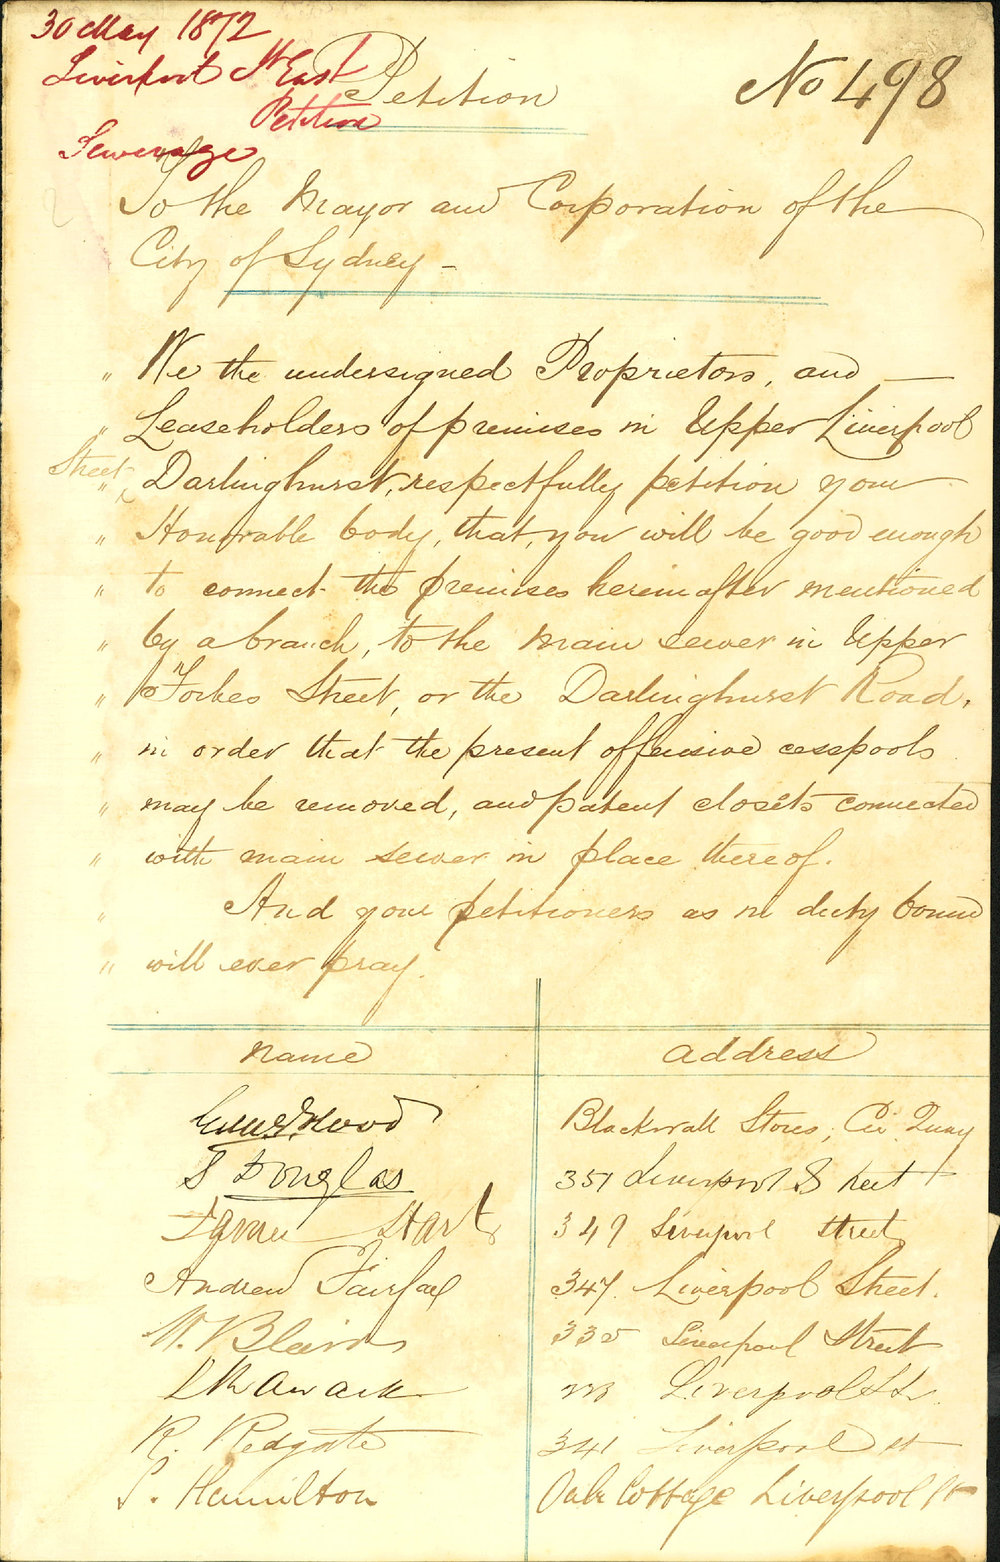 30 May 1872
Liverpool St East
Petition
Sewerage
Petition
No 498
To the Mayor and Corporation of the
City of Sydney -
" We the undersigned Proprietors, and
" Leaseholders of premises in Upper Liverpool
Street
" Darlinghurst, respectfully petition your
" Honorable body, that, you will be good enough
" to connect the premises hereinafter mentioned
" by a branch, to the main sewer in Upper
" Forbes Street, or the Darlinghurst Road,
" in order that the present offensive cesspools
" may be removed, and patent closets connected
" with main sewer in place thereof.
" And your petitioners as in duty bound
" will ever pray.
Name Address
Wood Blackwall Stores, Cir Quay
S Douglas 351 Liverpool Street
James Start 349 Liverpool Street
Andrew Fairfax 347 Liverpool Street.
W. Blair 335 Liverpool Street
Liverpool St.
R. Redgate 341 Liverpool St
S. Hamilton Oak Cottage Liverpool St